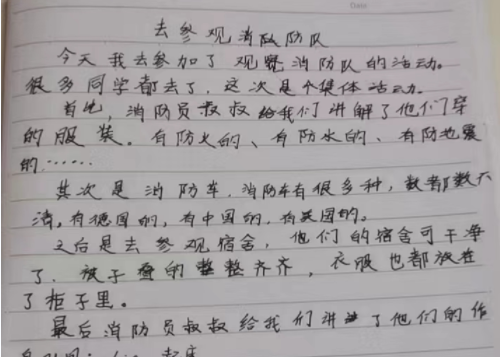 去参观消防队
今天我去参加了观察消防队的活动。
很多同学都去了，这次是个集体活动。
首先，消防员叔叔给我们讲解了他们穿
的服装。有防火的、有防水的、有防地震
的……
其次是消防车，消防车有很多种，数都数不
清，有德国的，有中国的，有美国的。
之后是去参观宿舍，他们的宿舍可干净
了，被子叠的整整齐齐，衣服也都放在
了柜子里。
最后消防员叔叔给我们讲了他们的作